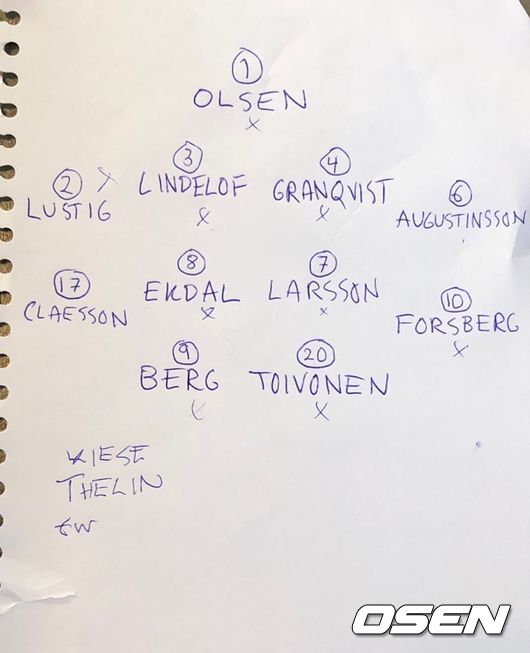 1
OLSEN
x
2 x 3 4 6
LUSTIG LINDELOF GRANQVIST AUGUSTINSSON
x x
17 8 7 10
CLAESSON EKDAL LARSSON FORSBERG
x x x
9 20
BERG TOIVONEN
x x
KIESE
THELIN
OSEN